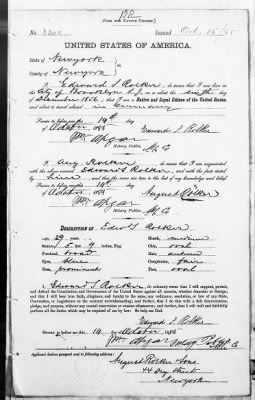 [FOR NATIVE CITIZEN.]
No. 3302 Issued Oct. 15/85
UNITED STATES OF AMERICA.
State of New york
County of New york
I, Edward S Rolker, do swear that I was born in
City of Brooklyn, on or about the day
of December 1856; that I am a Native and Loyal Citizen of the United States,
and about to travel
Sworn to before me this 14th day
of October 1885 Edward S. Rolker
Wm Apgar
Notary Public.
I, Aug. Rolker, do swear that I am acquainted
with the above named Edward S Rolker, and with the facts
stated by him and that the same are true to the best of my knowledge and belief.
Sworn to before me this 14th day
of October 1885 August Rolker
Wm Apgar
Notary Public.
DESCRIPTION OF Edw S Rolker
Age, 29 years. Mouth, medium
Stature, 5 feet 9 inches, Eng. Chin, oval
Forehead, broad Hair, auburn
Eyes, blue Complexion, fair
Nose, prominent Face, oval
I, Edward S Rolker, do solemnly swear that I will support, protect,
and defend the Constitution and Government of the United States against all enemies, whether domestic or foreign;
and that I will bear true faith, allegiance, and loyalty to the same, any ordinance, resolution, or law of any State,
Convention, or Legislature to the contrary notwithstanding; and further, that I do this with a full determination,
pledge, and purpose, without any mental reservation or evasion whatsoever; and further, that I will well and faithfully
perform all the duties which may be required of me by law: So help me God.
Edward S. Rolker
Sworn to before me this 14 day of October 1885
Wm Apgar
Applicant desires passport sent to following address:
August Rolker & Sons
44 Dey Street
New york